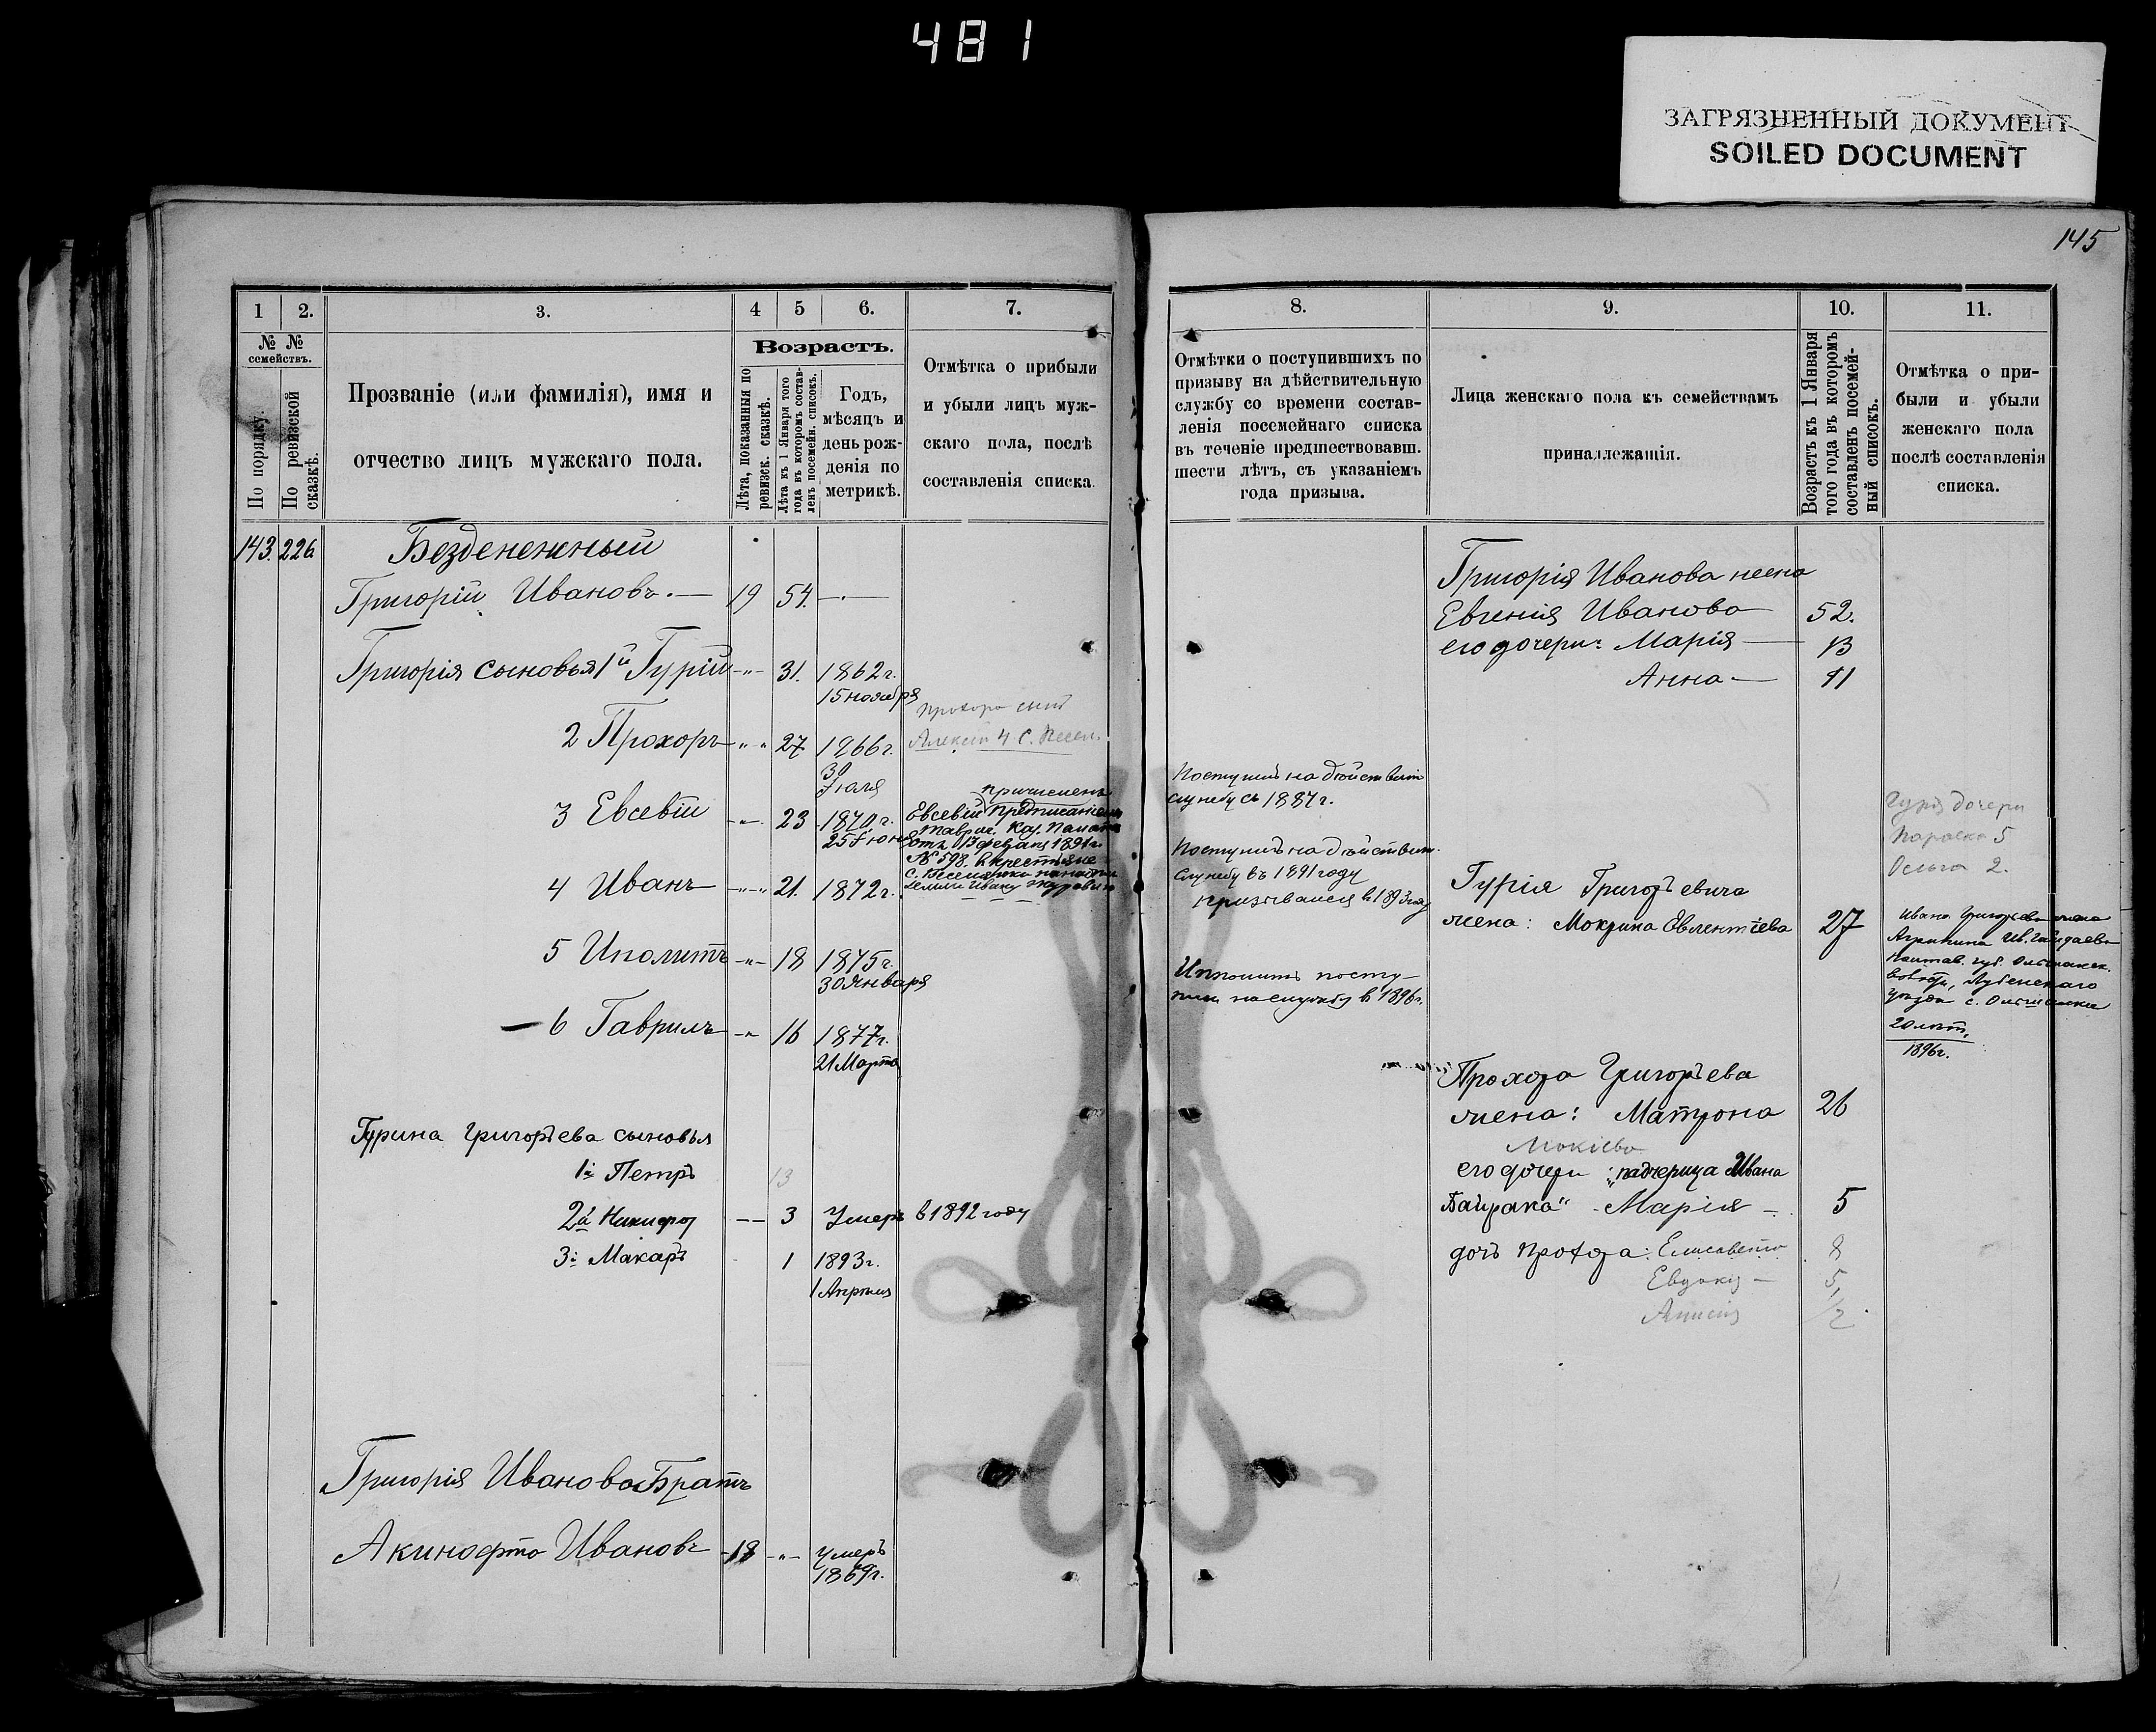 481
ЗАГРЯЗНЕННЫЙ ДОКУМЕНТ
SOILED DOCUMENT
145
1
2.
3.
4
5
6.
7.
№ №
семействъ.
По порядку.
По ревизской
сказкѣ.
Прозваніе (или фамилія), имя и
отчество лицъ мужскаго пола.
Возрастъ.
Лѣта, показанныя по
ревизск. сказкѣ.
Лѣта къ 1 Января того
года въ которомъ состав-
ленъ посемейн. списокъ.
Годъ,
мѣсяцъ и
день рож-
денія по
метрикѣ.
Отмѣтка о прибыли
и убыли лицъ муж-
скаго пола, послѣ
составленія списка.
143. 226
Безденежный
Григорій Ивановъ. — 19 54. —
Григорія сыновья 1й Гурій 31. 1862г.
15 ноября
Прохора сынъ
2 Прохоръ 27 1966г. Алексѣй 4
30
Іюля
причисленъ
3 Евсевій 23 1870г. Евсевій предписаніемъ
25 Іюня
Таврич. Каз. Палаты
отъ 13 февраля 1891г.
№ 598. в крестьяне
4 Иванъ 21. 1872г.
с.
земли Ивану
5 Иполитъ 18 1875г.
30 Января
— 6 Гаврилъ 16 1877г.
21 Марта
Гурина Григорьева сыновья
1й Петръ 13
2й Никифор — 3 Умеръ в 1892 году
3й Макаръ 1 1893г.
1 Апрѣля
Григорія Иванова Братъ
Акинофто Ивановъ 18 умеръ
1869г.
8.
9.
10.
11.
Отмѣтки о поступившихъ по
призыву на дѣйствительную
службу со времени состав-
ленія посемейнаго списка
въ теченіе предшествовавш.
шести лѣтъ, съ указаніемъ
года призыва.
Лица женскаго пола къ семействамъ
принадлежащія.
Возрастъ къ 1 Января
того года въ которомъ
составленъ посемей-
ный списокъ.
Отмѣтка о при-
были и убыли
женскаго пола
послѣ составленія
списка.
Григорія Иванова жена
Евгенія Иванова 52.
его дочери: Марія — 13
Анна — 11
Поступилъ на дѣйствит
службу съ 1887г.
Поступилъ на дѣйствит.
службу въ 1891 году
призывался в 1893 году
Ипполитъ посту-
пил на службу в 1896г.
Гурія дочери
Параска 5
Ольга 2.
Гурія Григорьевича
жена: Мокрина Евлентіева 27
Ивана Григорьева жена
Агрипина Ив.
Полтав. губ.
волости, Лубенскаго
уѣзда с.
20 лѣт,
1896г.
Прохора Григорьева
жена: Матрона 26
Мокіева
его дочери: "падчерица Ивана
Байрака" - Марія — 5
дочь Прохора: Елисавета 8
Евдокія — 5,
Анисія 1/2